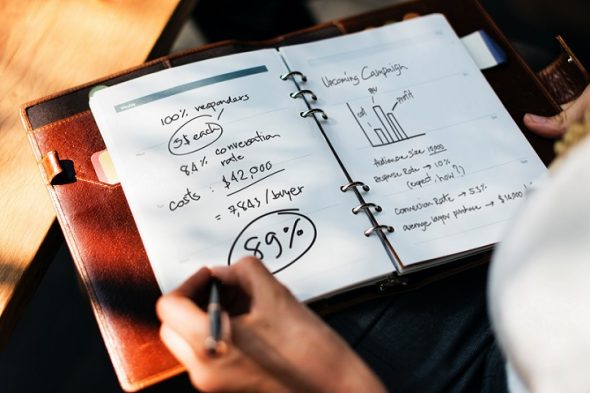 100% responders
5$ each
84% conversation
rate
costs : $42,000
= 7,84$/buyer
89%
Upcoming Campaign
profit
Audience size 10,000
Response Rate → 10%
(expect, how?)
Conversion Rate → 5.3%
average buyer purchase → $14,000